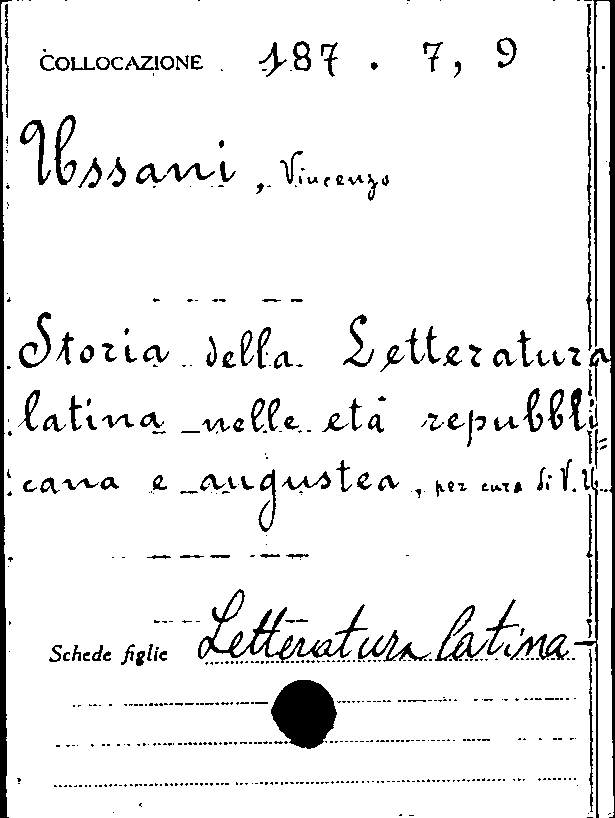 COLLOCAZIONE 187 . 7, 9
Ussani, Vincenzo
Storia della Letteratura
latina nelle età repubbli=
cana e augustea, per cura di V. U.
Schede figlie Letteratura latina -